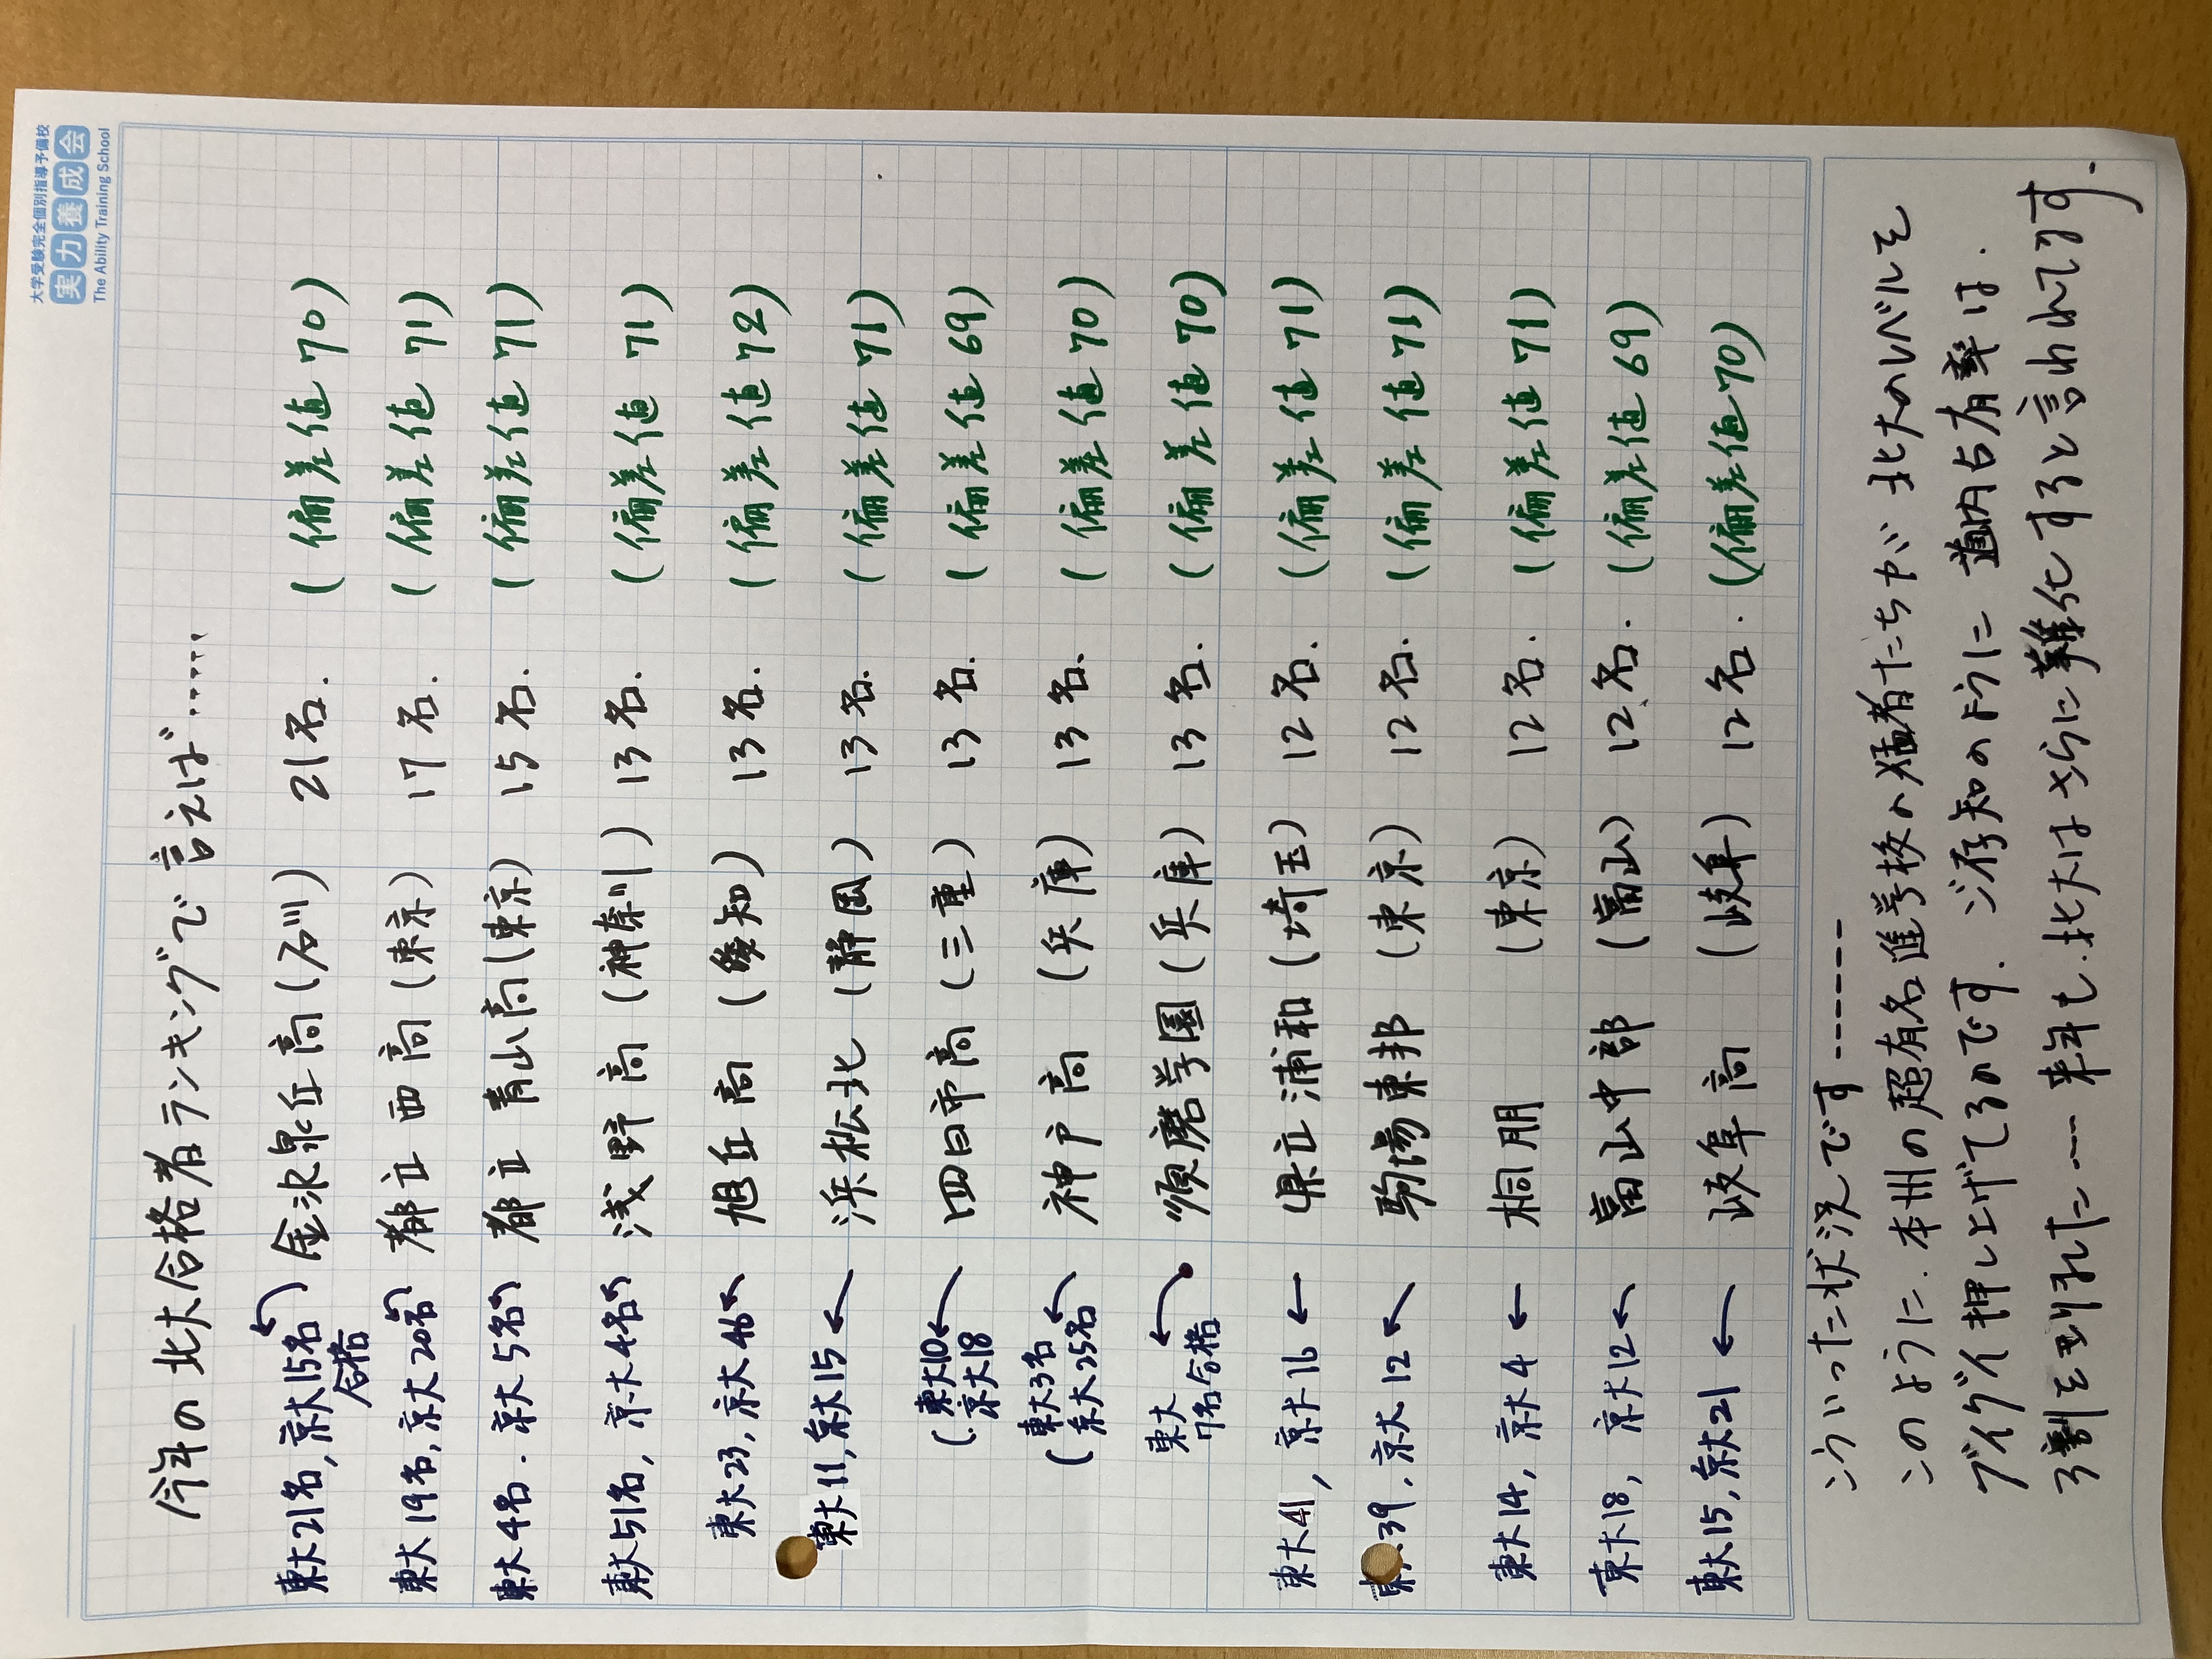 大学受験完全個別指導予備校
実力養成会
The Ability Training School
今年の北大合格者ランキングで言えば……
東大21名, 京大15名合格 金沢泉丘高 (石川) 21名. (偏差値 70)
東大19名, 京大20名 都立西高 (東京) 17名. (偏差値 71)
東大4名. 京大5名 都立青山高 (東京) 15名. (偏差値 71)
東大51名, 京大4名 浅野高 (神奈川) 13名. (偏差値 71)
東大23, 京大46 旭丘高 (愛知) 13名. (偏差値 72)
東大11, 京大15 ← 浜松北 (静岡) 13名. (偏差値 71)
(東大10. 京大18 ← 四日市高 (三重) 13名. (偏差値 69)
(東大3名 京大25名 ← 神戸高 (兵庫) 13名. (偏差値 70)
東大7名合格 ← 須磨学園 (兵庫) 13名. (偏差値 70)
東大41, 京大16 ← 県立浦和 (埼玉) 12名. (偏差値 71)
東大39, 京大12 ← 駒場東邦 (東京) 12名. (偏差値 71)
東大14, 京大4 ← 桐朋 (東京) 12名. (偏差値 71)
東大18, 京大12 ← 富山中部 (富山) 12名. (偏差値 69)
東大15, 京大21 ← 岐阜高 (岐阜) 12名. (偏差値 70)
こういった状況です------
このように. 本州の超有名進学校の猛者たちが 北大のレベルを
グイグイ押し上げてるのです. ご存知のように 道内占有率は.
3割を割れた…. 来年も. 北大はさらに難化すると言われてます.